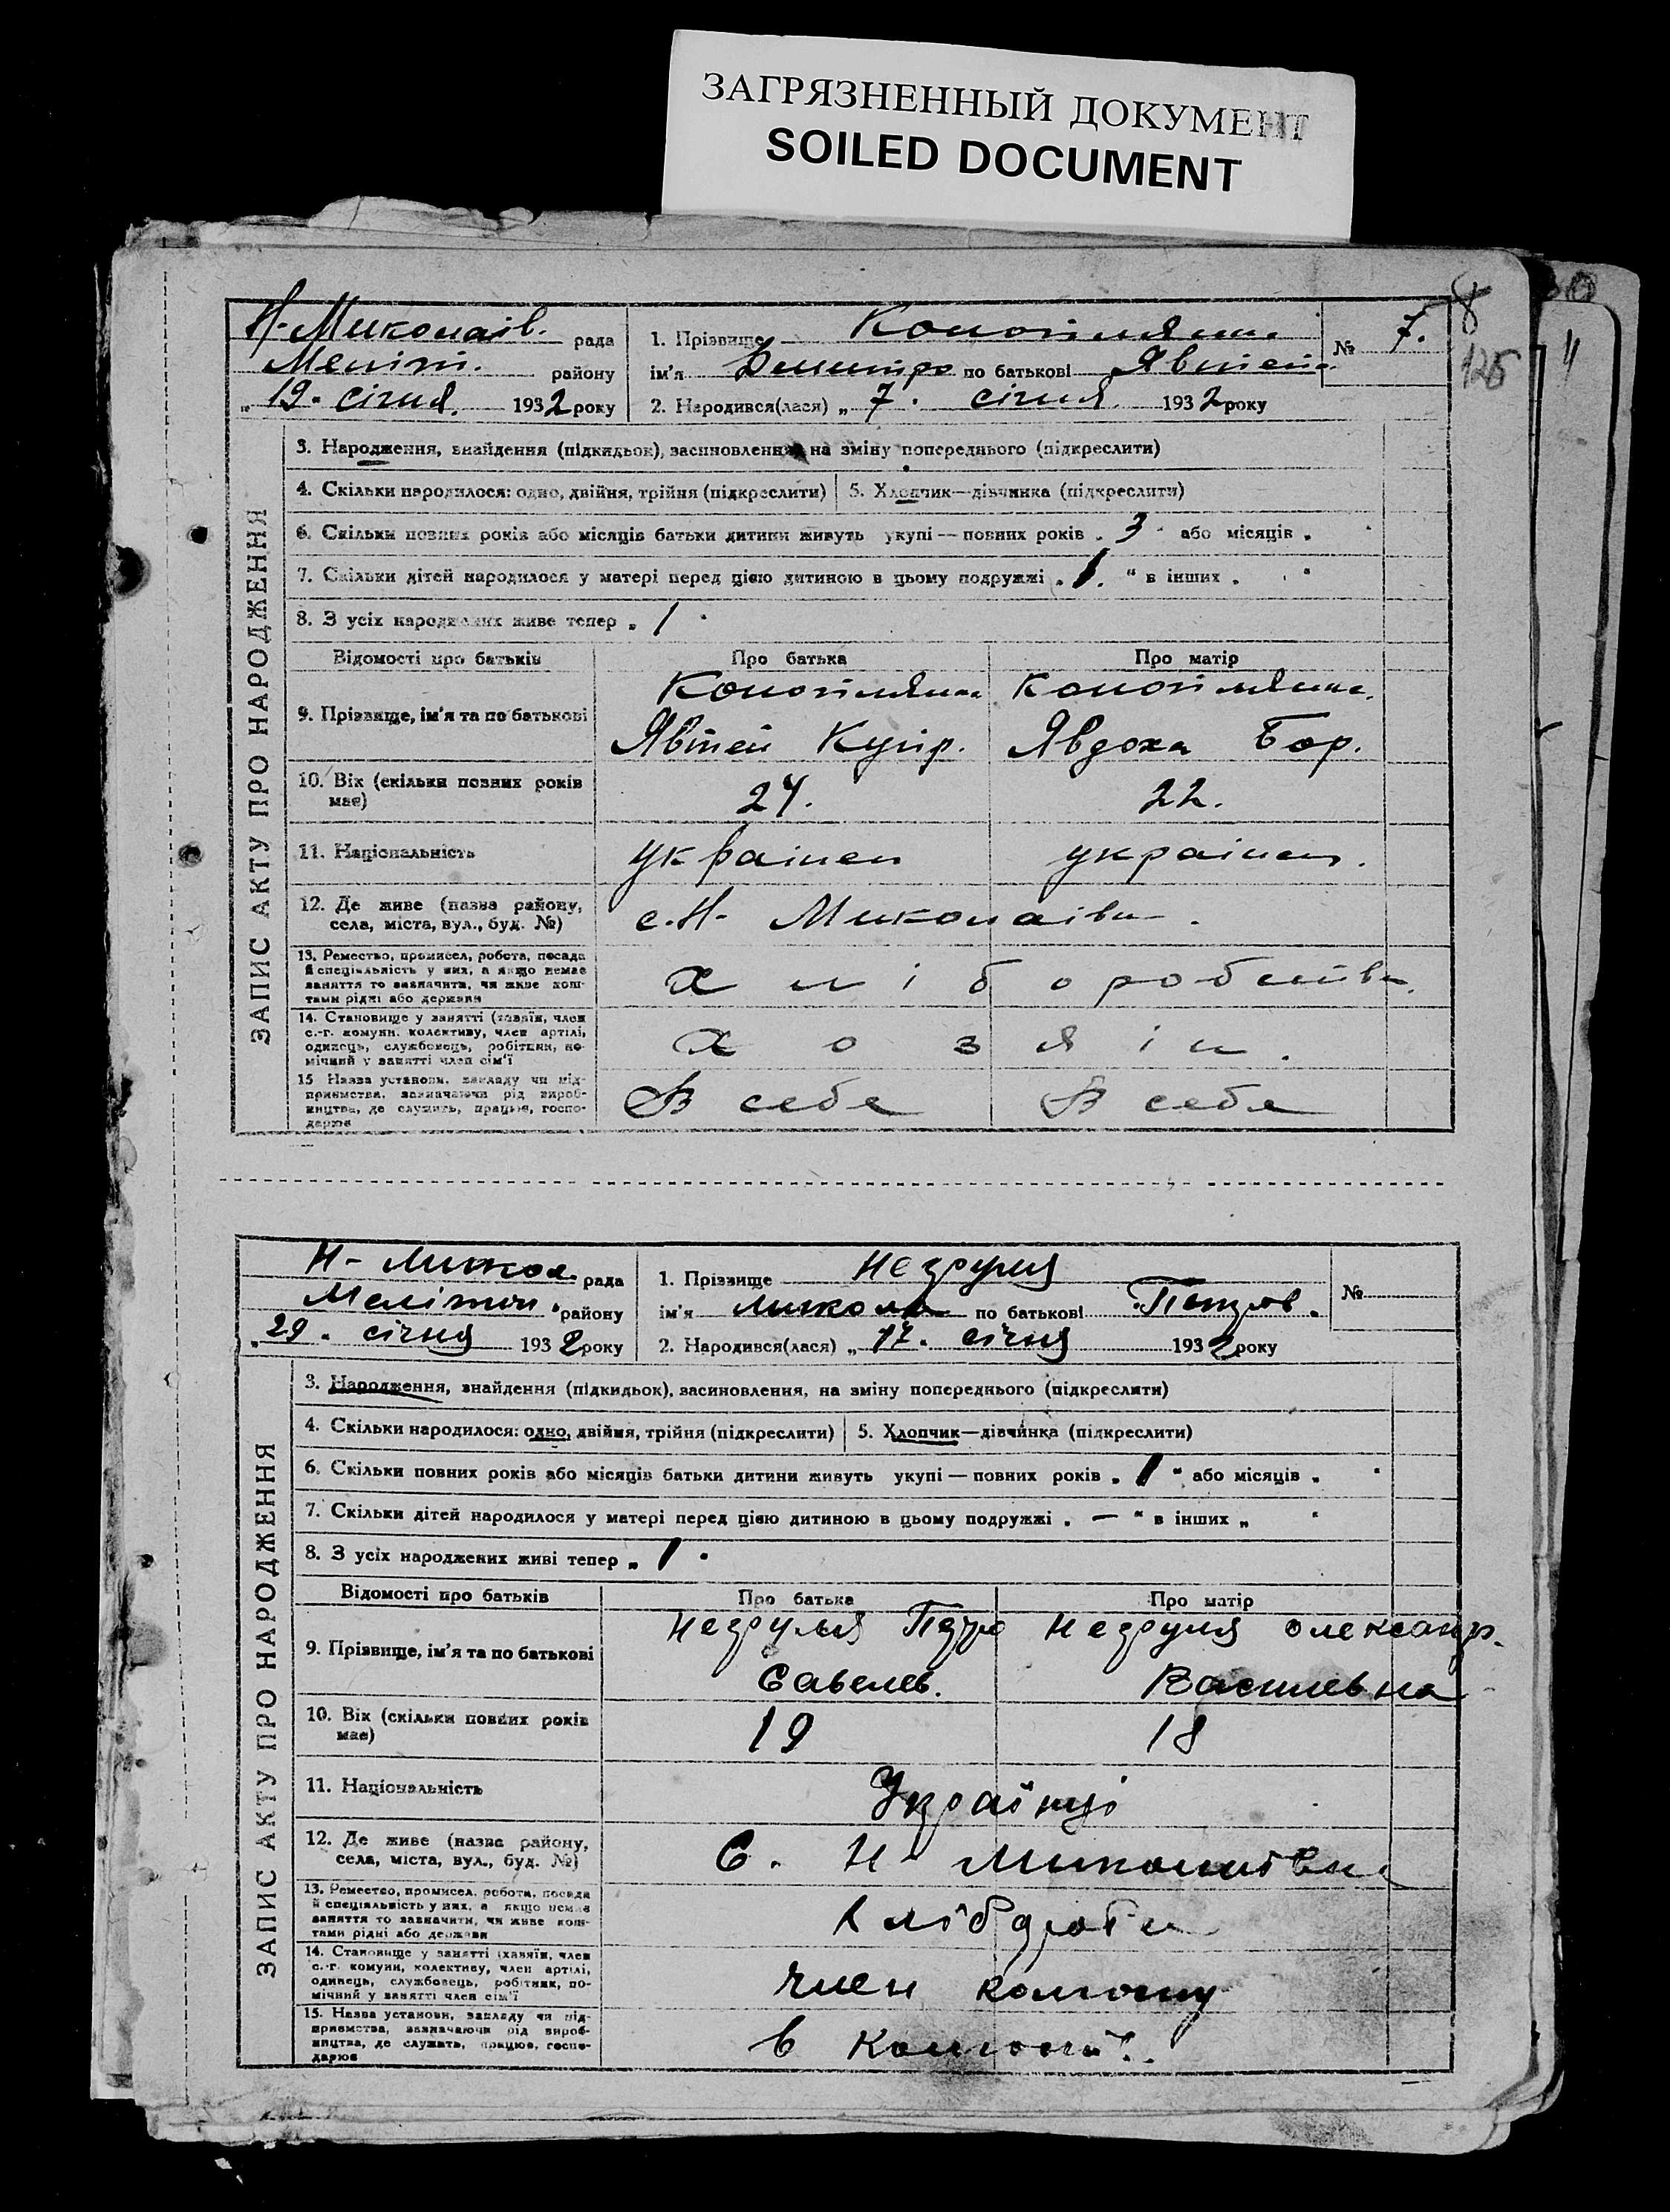 ЗАГРЯЗНЕННЫЙ ДОКУМЕНТ
SOILED DOCUMENT
8
126
Н-Миколаів. рада
Меліт. району
„ 19. січня. 1932 року
1. Прізвище
ім'я Дмитро по батькові Явтей.
2. Народився(лася) „ 7. січня 1932 року
№ 7.
ЗАПИС АКТУ ПРО НАРОДЖЕННЯ
3. Народження, знайдення (підкидьок), засиновлення, на зміну попереднього (підкреслити)
4. Скільки народилося: одно, двійня, трійня (підкреслити) 5. Хлопчик—дівчинка (підкреслити)
6. Скільки повних років або місяців батьки дитини живуть укупі — повних років „ 3 “ або місяців „ “
7. Скільки дітей народилося у матері перед цією дитиною в цьому подружжі „ 1. “ в інших „ “
8. З усіх народжених живе тепер „ 1 “
Відомості про батьків Про батька Про матір
9. Прізвище, ім'я та по батькові
Явтей Купр. Явдоха Бор.
10. Вік (скільки повних років має) 24. 22.
11. Національність українец українец.
12. Де живе (назва району, села, міста, вул., буд. №) с. Н- Миколаівн.
13. Ремество, промисел, робота, посада й спеціяльність у них, а якщо немає заняття то зазначити, чи живе коштами рідні або держави хліборобств.
14. Становище у занятті (хазяїн, член с.-г. комуни, колективу, член артілі, одинець, службовець, робітник, помічний у занятті член сім'ї хозяін.
15 Назва установи, закладу чи підприємства, зазначаючи рід виробництва, де служить, працює, господарює В себе В себе
Н- Микол. рада
Мелітоп. району
„ 29. січня 1932 року
1. Прізвище Недруля
ім'я Микола по батькові Петров.
2. Народився(лася) „ 17. січня 1932 року
№
ЗАПИС АКТУ ПРО НАРОДЖЕННЯ
3. Народження, знайдення (підкидьок), засиновлення, на зміну попереднього (підкреслити)
4. Скільки народилося: одно, двійня, трійня (підкреслити) 5. Хлопчик—дівчинка (підкреслити)
6. Скільки повних років або місяців батьки дитини живуть укупі — повних років „ 1 “ або місяців „ “
7. Скільки дітей народилося у матері перед цією дитиною в цьому подружжі „ — “ в інших „ “
8. З усіх народжених живі тепер „ 1 “
Відомості про батьків Про батька Про матір
9. Прізвище, ім'я та по батькові Недруля Петро Недруля Олександр.
Савелев. Василевна
10. Вік (скільки повних років має) 19 18
11. Національність Українці
12. Де живе (назва району, села, міста, вул., буд. №) С. Н- Миколаївн
13. Ремество, промисел, робота, посада й спеціяльність у них, а якщо немає заняття то зазначити, чи живе коштами рідні або держави
14. Становище у занятті (хазяїн, член с.-г. комуни, колективу, член артілі, одинець, службовець, робітник, помічний у занятті член сім'ї член колгоспу
15. Назва установи, закладу чи підприємства, зазначаючи рід виробництва, де служить, працює, господарює в колгоспі.